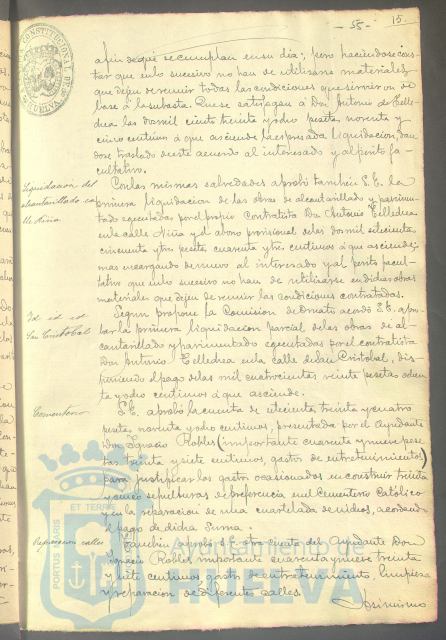 - 55 - 15.
a fin de que se cumplan en su dia; pero haciendose cons-
tar que en lo sucesivo no han de utilizarse materiales,
que dejen de reunir todas las condiciones que sirvieron de
base á la subasta. Que se satisfagan á Don Antonio de Telle-
dhea las dos mil ciento treinta y ocho pesetas, noventa y
cinco centimos á que asciende la espresada liquidacion, dan
dose traslado de este acuerdo al interesado y al perito fa-
cultativo.
Liquidacion del
alcantarillado ca
lle Niña
Con las mismas salvedades aprobó tambien S.E. la
primera liquidacion de las obras de alcantarillado y pavimen-
tado ejecutadas por el propio Contratista Don Antonio Telledhea
en la calle Niña y el abono provisional de las dos mil setecientas
cincuenta y tres pesetas cuarenta y tres centimos á que asciende;
mas encargando de nuevo al interesado y al perito facul-
tativo que en lo sucesivo no han de utilizarse en dichas obras
materiales que dejen de reunir las condiciones contratadas.
Id id id
San Cristobal
Segun propone la Comision de Ornato acordó S.E. apro-
bar la primera liquidacion parcial de las obras de al-
cantarillado y pavimentado ejecutadas por el contratista
Don Antonio Telledhea en la calle de San Cristobal, dis-
poniendo el pago de las mil cuatrocientas veinte pesetas ochen-
ta y ocho centimos á que asciende.
Cementerio
S.E. aprobó la cuenta de setecientas treinta y cuatro
pesetas, noventa y ocho centimos, presentada por el Ayudante
Don Ignacio Robles (importante cuarenta y nueve pese
tas treinta y siete centimos, gastos de entretenimientos)
para justificar los gastos ocasionados en construir treinta
y cinco sepulturas de preferencia en el Cementerio Católico
y en la reparacion de una cuartelada de nichos, acordando
el pago de dicha suma.
Reparacion calles
Tambien aprobó S.E. otra cuenta del Ayudante Don
Ignacio Robles importante cuarenta y nueve treinta
y siete centimos gastos de entretenimiento, limpieza
y reparacion de diferentes calles.
Asimismo
CONSTITUCIONAL
HUELVA
PORTUS MARIS
ET TERRE
Ayuntamiento de
HUELVA